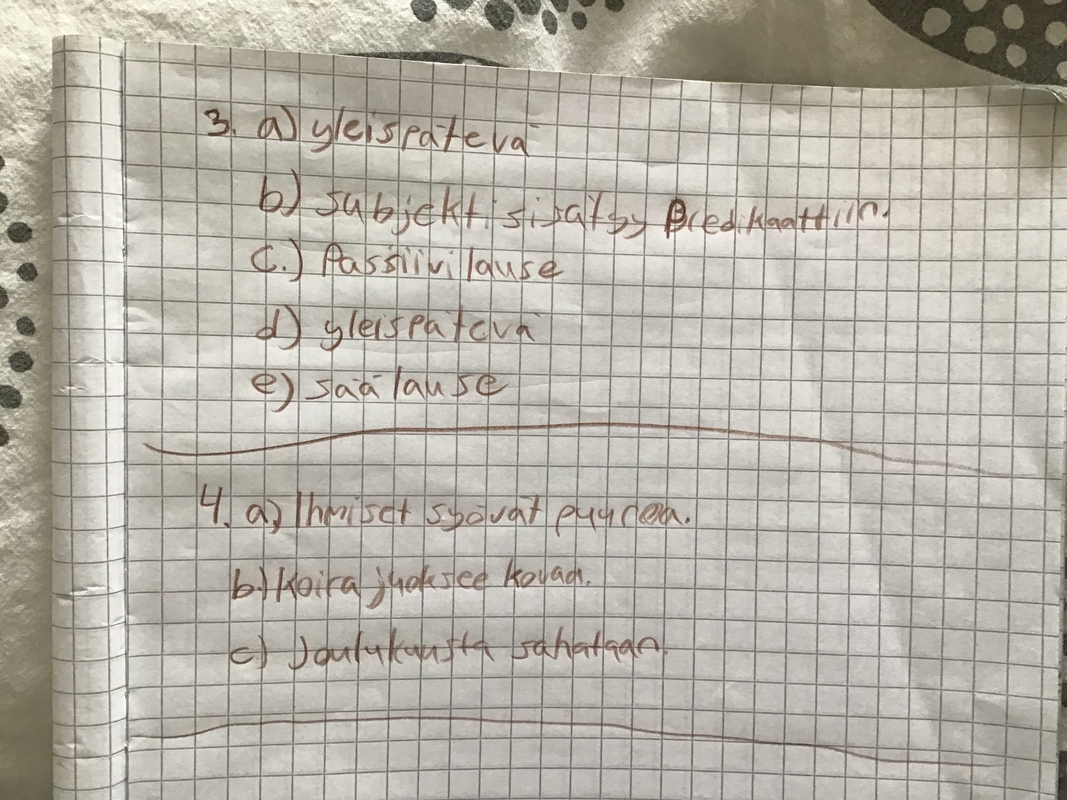 3. a) yleispätevä
b) subjekti sisältyy predikaattiin.
c.) Passiivilause
d) yleispätevä
e) sää lause
4. a) Ihmiset syövät puuroa.
b) Koira juoksee kovaa.
c) Joulukuusta sahataan.